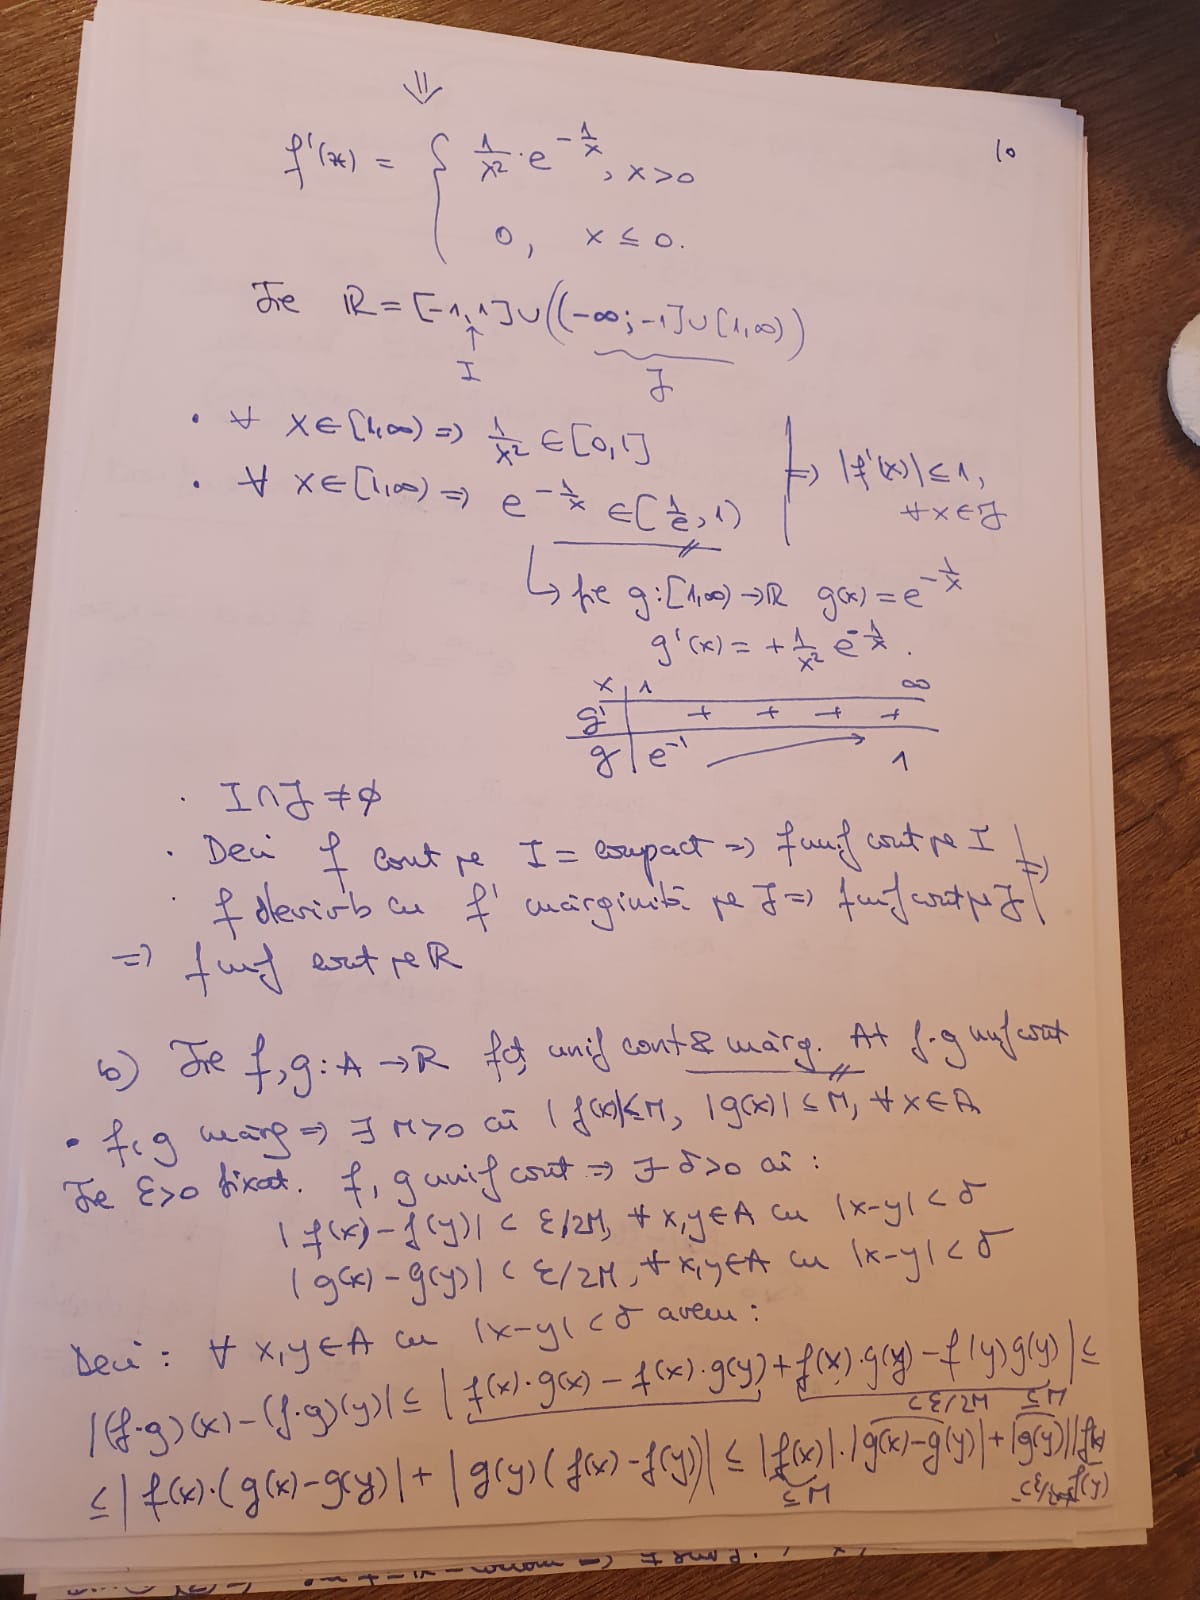 ⇓
10
f'(x) = { 1/x² · e^(-1/x), x>0
0, x ≤ 0.
Fie ℝ = [-1,1] ∪ ((-∞;-1] ∪ [1,∞))
I J
• ∀ x∈[1,∞) => 1/x² ∈ [0,1]
• ∀ x∈[1,∞) => e^(-1/x) ∈ [1/e, 1)
=> |f'(x)| ≤ 1,
∀ x∈J
↳ fie g: [1,∞) → ℝ g(x) = e^(-1/x)
g'(x) = + 1/x² e^(-1/x).
x | 1 ∞
g' | + + + +
g | e^(-1) → 1
· I∩J ≠ ∅
· Deci f cont pe I = compact => f unif cont pe I | =>
· f derivb cu f' mărginită pe J => f unif cont pe J |
=> f unif cont pe ℝ
b) Fie f, g: A → ℝ fcț unif cont & mărg. At f·g unif cont
• f, g mărg => ∃ M>0 aî |f(x)| ≤ M, |g(x)| ≤ M, ∀ x∈A
Fie ε>0 fixat. f, g unif cont => ∃ δ>0 aî:
|f(x) - f(y)| < ε/2M, ∀ x,y∈A cu |x-y| < δ
|g(x) - g(y)| < ε/2M, ∀ x,y∈A cu |x-y| < δ
Deci: ∀ x,y∈A cu |x-y| < δ avem:
|(f·g)(x) - (f·g)(y)| ≤ |f(x)·g(x) - f(x)·g(y) + f(x)·g(y) - f(y)g(y)| ≤
<ε/2M ≤M
≤ |f(x)·(g(x) - g(y)| + |g(y)(f(x) - f(y))| ≤ |f(x)|·|g(x) - g(y)| + |g(y)||f(x)-
≤M <ε/2M f(y)|